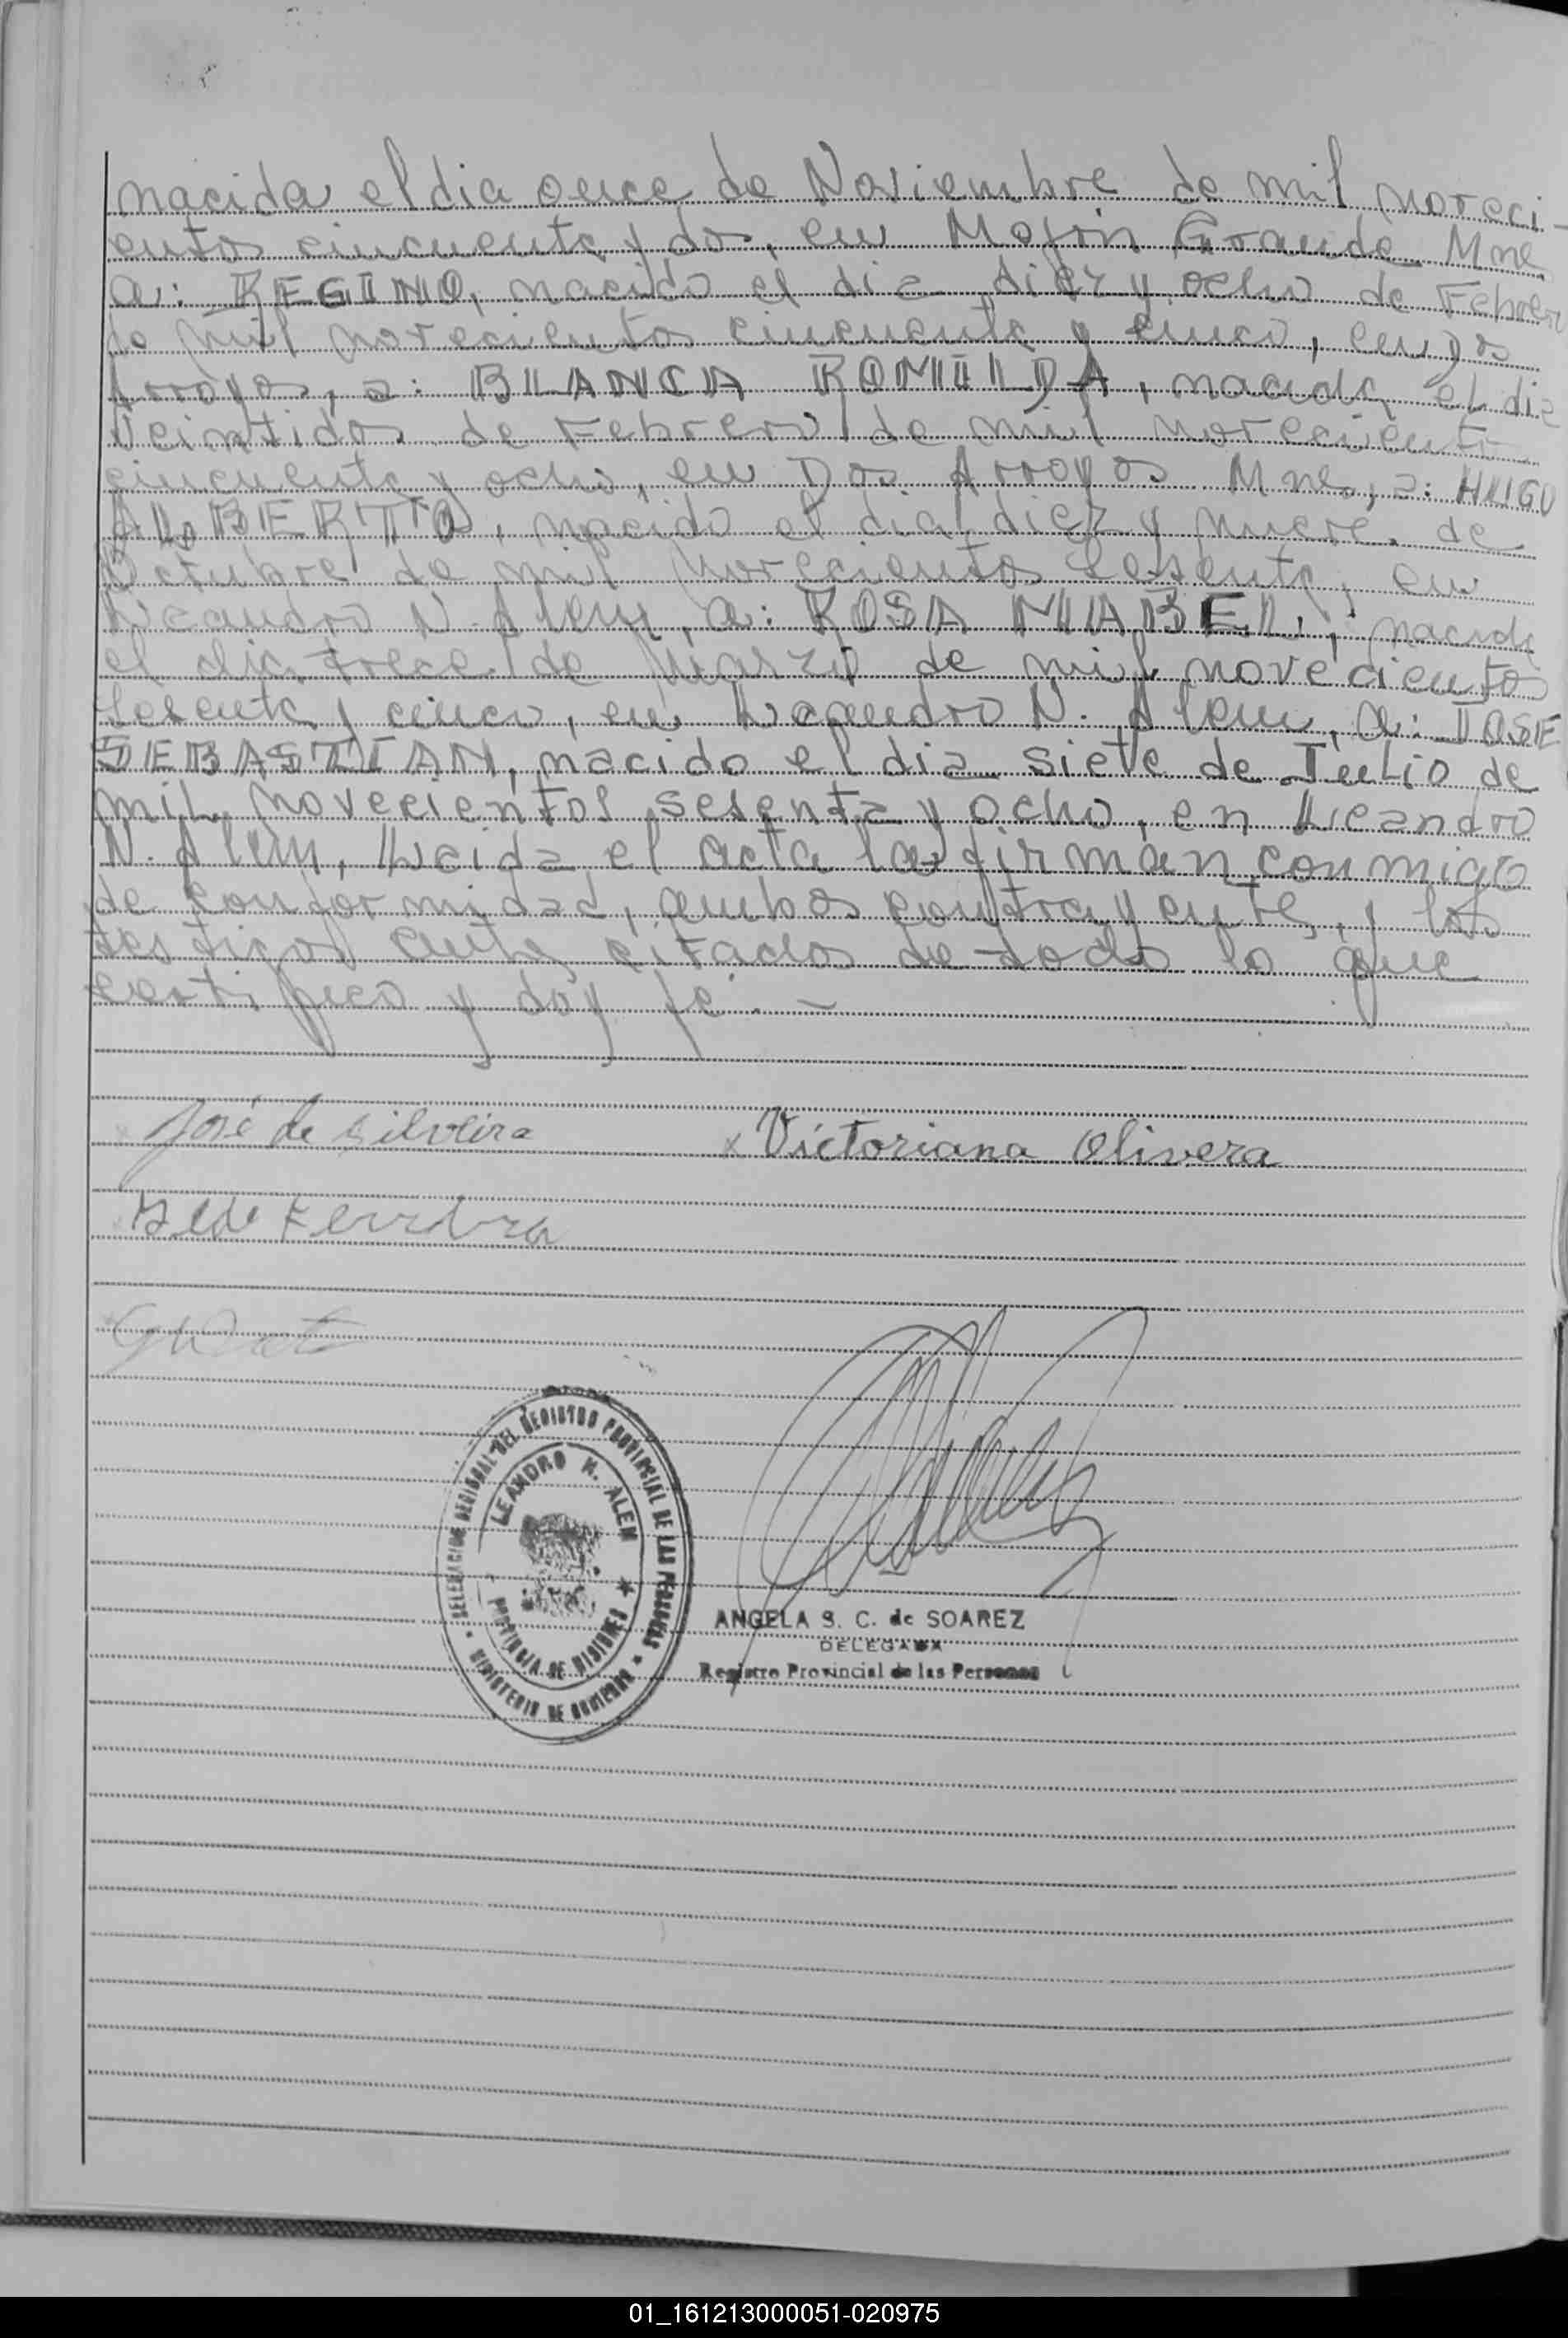 nacida el dia once de Noviembre de mil noveci-
entos cincuenta y dos, en Mojon Grande Mnes
a: REGINO, nacido el dia diez y ocho de Febrero
de mil novecientos cincuenta y cinco, en Dos
Arroyos, a: BLANCA ROMILDA, nacida el dia
Veintidos de Febrero de mil novecientos
cincuenta y ocho, en Dos Arroyos Mnes, a: HUGO
ALBERTO, nacido el dia diez y nueve de
Octubre de mil novecientos Sesenta, en
Leandro N. Alem, a: ROSA MABEL, nacida
el dia trece de Marzo de mil novecientos
Sesenta y cinco, en Leandro N. Alem, a: JOSE
SEBASTIAN, nacido el dia siete de Julio de
mil novecientos sesenta y ocho, en Leandro
N. Alem, Leida el acta la firman conmigo
de conformidad, ambos contrayentes, y los
testigos antes citados de todo lo que
certifico y doy fe. -
José de Silveira x Victoriana Olivera
DELEGACION REGIONAL DEL REGISTRO PROVINCIAL DE LAS PERSONAS
LEANDRO N. ALEM
PROVINCIA DE MISIONES
MINISTERIO DE GOBIERNO
ANGELA S. C. de SOAREZ
DELEGADA
Registro Provincial de las Personas
01_161213000051-020975